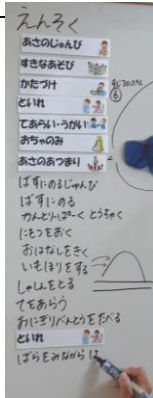 えんそく
あさのじゅんび
すきなあそび
かたづけ
⑥
といれ
てあらい・うがい
おちゃのみ
あさのあつまり
ばすにのるじゅんび
ばすにのる
かんとりーぱーく とうちゃく
にもつをおく
おはなしをきく
いもほりをする
しゃしんをとる
てをあらう
おにぎりべんとうをたべる
といれ
ばらをみながら は